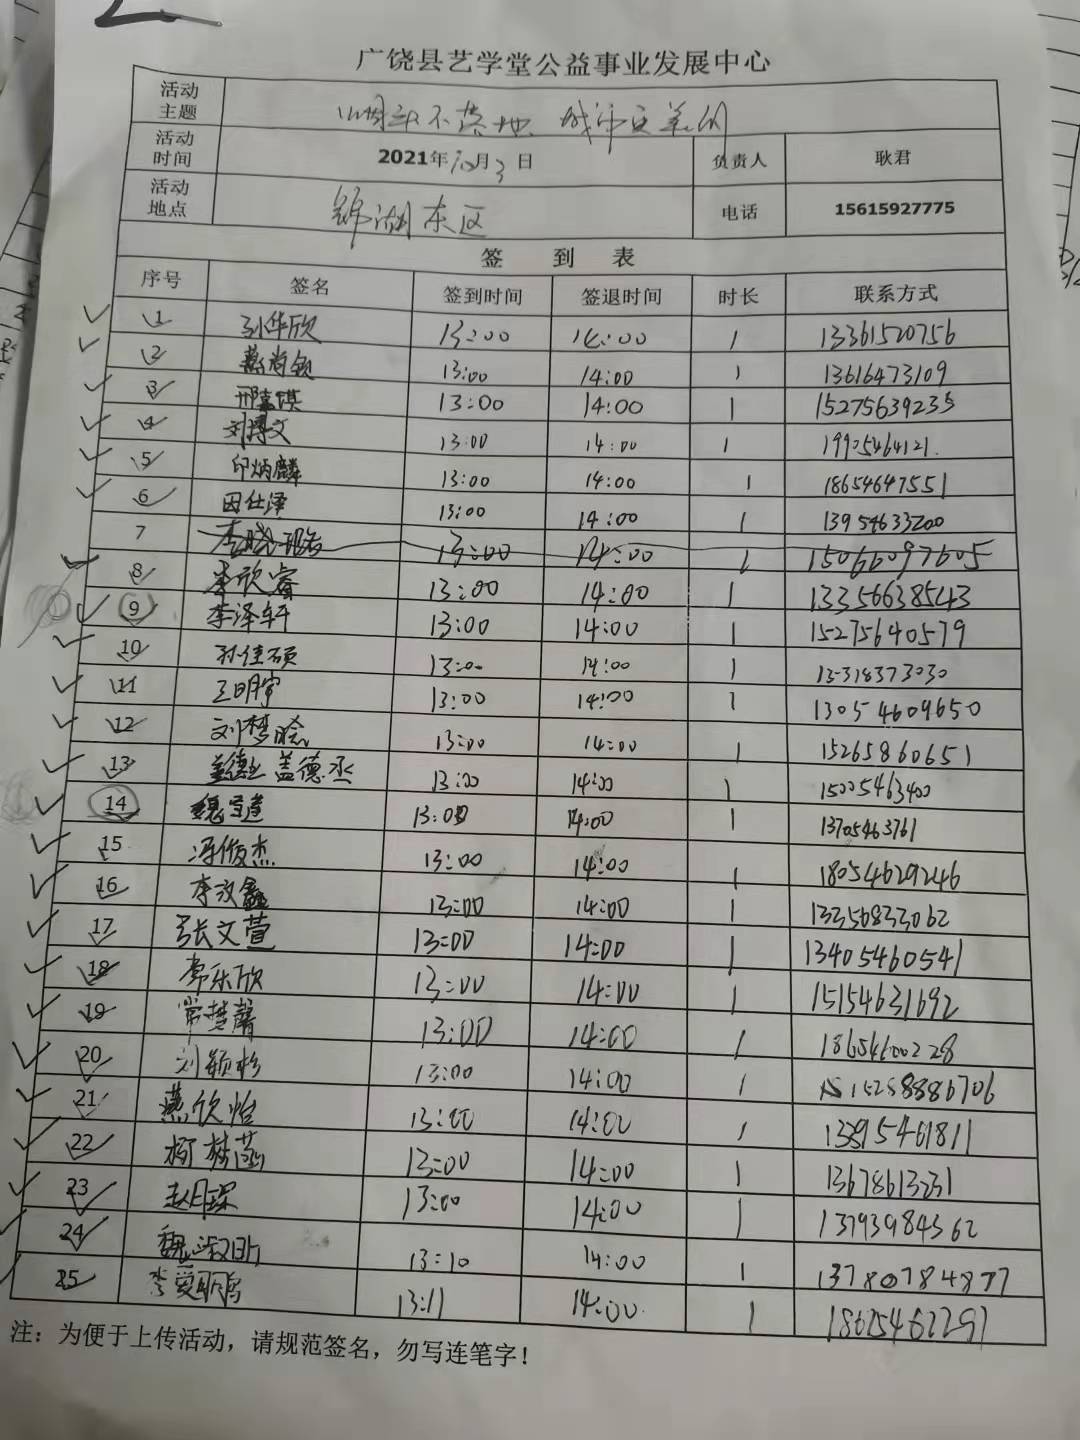 广饶县艺学堂公益事业发展中心
活动主题 烟头不落地 城市更美丽
活动时间 2021年10月3日 负责人 耿君
活动地点 锦湖东区 电话 15615927775
签到表
序号 签名 签到时间 签退时间 时长 联系方式
1 孙华欣 13:00 14:00 1 13361520756
2 燕尚钦 13:00 14:00 1 13616473109
3 邢嘉琪 13:00 14:00 1 15275639235
4 刘博文 13:00 14:00 1 19905464121.
5 印炳麟 13:00 14:00 1 18654647551
6 田仕泽 13:00 14:00 1 13954633200
7 13:00 14:00 1 15066097605
8 李欣睿 13:00 14:00 1 13356638543
9 李泽轩 13:00 14:00 1 15275640579
10 孙佳硕 13:00 14:00 1 15318373030
11 王明宇 13:00 14:00 1 13054609650
12 刘梦晗 13:00 14:00 1 15265860651
13 盖德丞 13:00 14:00 1 15005463400
14 13:00 14:00 1 13705463761
15 冯俊杰 13:00 14:00 1 18054629246
16 李汶鑫 13:00 14:00 1 13350833062
17 张文萱 13:00 14:00 1 13405460541
18 常乐欣 13:00 14:00 1 15154631692
19 常梦馨 13:00 14:00 1 18654600228
20 刘颖杉 13:00 14:00 1 15258886706
21 燕欣怡 13:00 14:00 1 13815461811
22 13:00 14:00 1 13678613231
23 赵月琛 13:00 14:00 1 13793984362
24 13:10 14:00 1 13780784877
25 13:11 14:00. 1 18615462291
注：为便于上传活动，请规范签名，勿写连笔字！